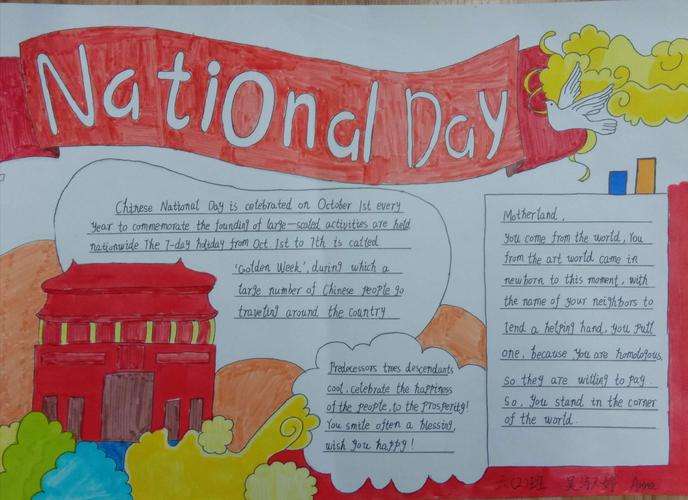 National Day
Chinese National Day is celebrated on October 1st every
year to commemorate the founding of large-scaled activities are held
nationwide The 7-day holiday from Oct 1st to 7th is called
'Golden Week', during which a
large number of Chinese people go
traveling around the country
Predecessors trees descendants
cool, celebrate the happiness
of the people, to the prosperity!
You smile often a blessing,
wish you happy!
Motherland,
you come from the world, You
from the art world came in
newborn to this moment, with
the name of your neighbors to
lend a helping hand, you pull
one, because you are homologous,
so they are willing to pay
So, you stand in the corner
of the world.
班 Anna